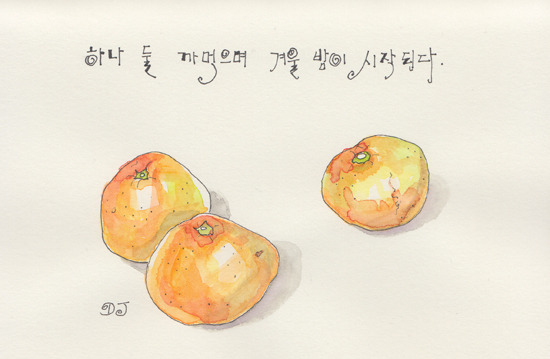 하나 둘 까먹으며 겨울 밤이 시작 된다.
DJ